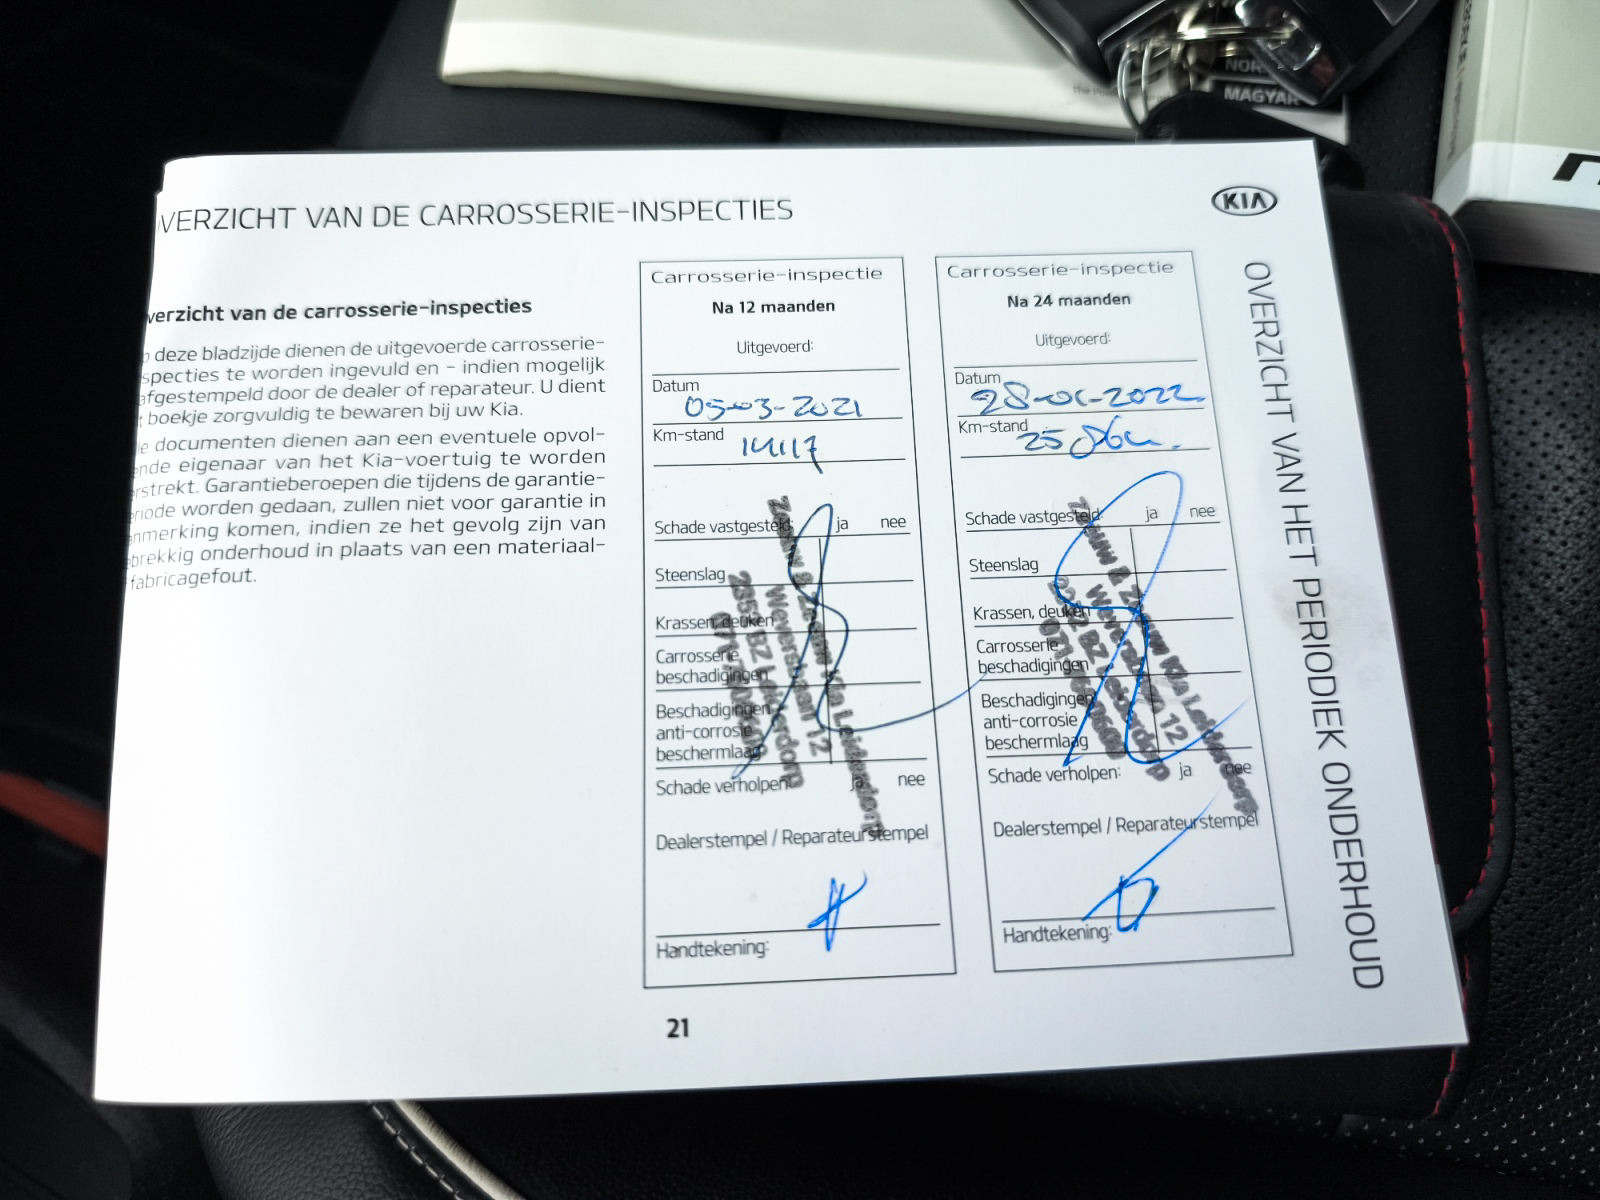 NOR
MAGYAR
VERZICHT VAN DE CARROSSERIE-INSPECTIES
KIA
verzicht van de carrosserie-inspecties
deze bladzijde dienen de uitgevoerde carrosserie-
specties te worden ingevuld en - indien mogelijk
afgestempeld door de dealer of reparateur. U dient
t boekje zorgvuldig te bewaren bij uw Kia.
le documenten dienen aan een eventuele opvol-
ende eigenaar van het Kia-voertuig te worden
rstrekt. Garantieberoepen die tijdens de garantie-
riode worden gedaan, zullen niet voor garantie in
nmerking komen, indien ze het gevolg zijn van
brekkig onderhoud in plaats van een materiaal-
fabricagefout.
Carrosserie-inspectie
Na 12 maanden
Uitgevoerd:
Datum
05-03-2021
Km-stand
14117
Schade vastgesteld: ja nee
Steenslag
Krassen, deuken
Carrosserie
beschadigingen
Beschadigingen
anti-corrosie
beschermlaag
Schade verholpen: ja nee
Dealerstempel / Reparateurstempel
Handtekening:
Zeeuw & Zeeuw Kia Leiderdorp
Weversbaan 12
2352 BZ Leiderdorp
Carrosserie-inspectie
Na 24 maanden
Uitgevoerd:
Datum
Km-stand
Schade vastgesteld: ja nee
Steenslag
Krassen, deuken
Carrosserie
beschadigingen
Beschadigingen
anti-corrosie
beschermlaag
Schade verholpen: ja nee
Dealerstempel / Reparateurstempel
Handtekening:
Zeeuw & Zeeuw Kia Leiderdorp
Weversbaan 12
2352 BZ Leiderdorp
OVERZICHT VAN HET PERIODIEK ONDERHOUD
21